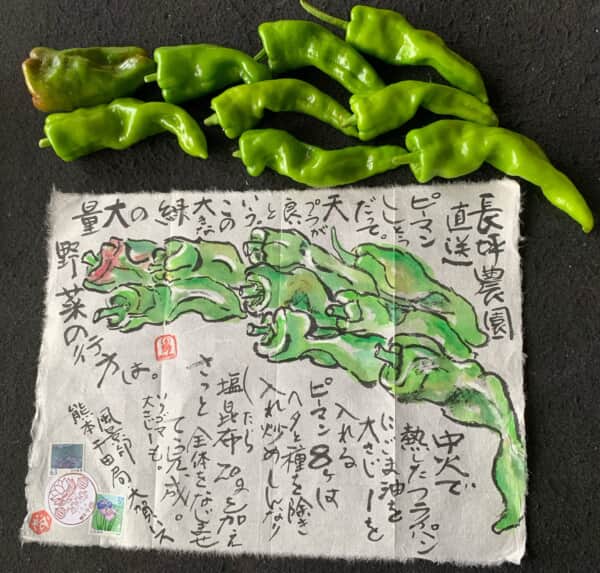 長坪農園
直送
ピーマン
だって。
天プラが
良と
いう。
この
大きな
緑
の
大
量
野菜の行方は。
中火で
熱したフライパン
にごま油を
大さじ一を
入れる
ピーマン8ヶは
ヘタと種を除き
入れ炒めしんなり
したら
塩昆布20gを加え
さっと全体をなじませ
て完成。
いりゴマ
大さじ一も。
風景印
熊本千田局